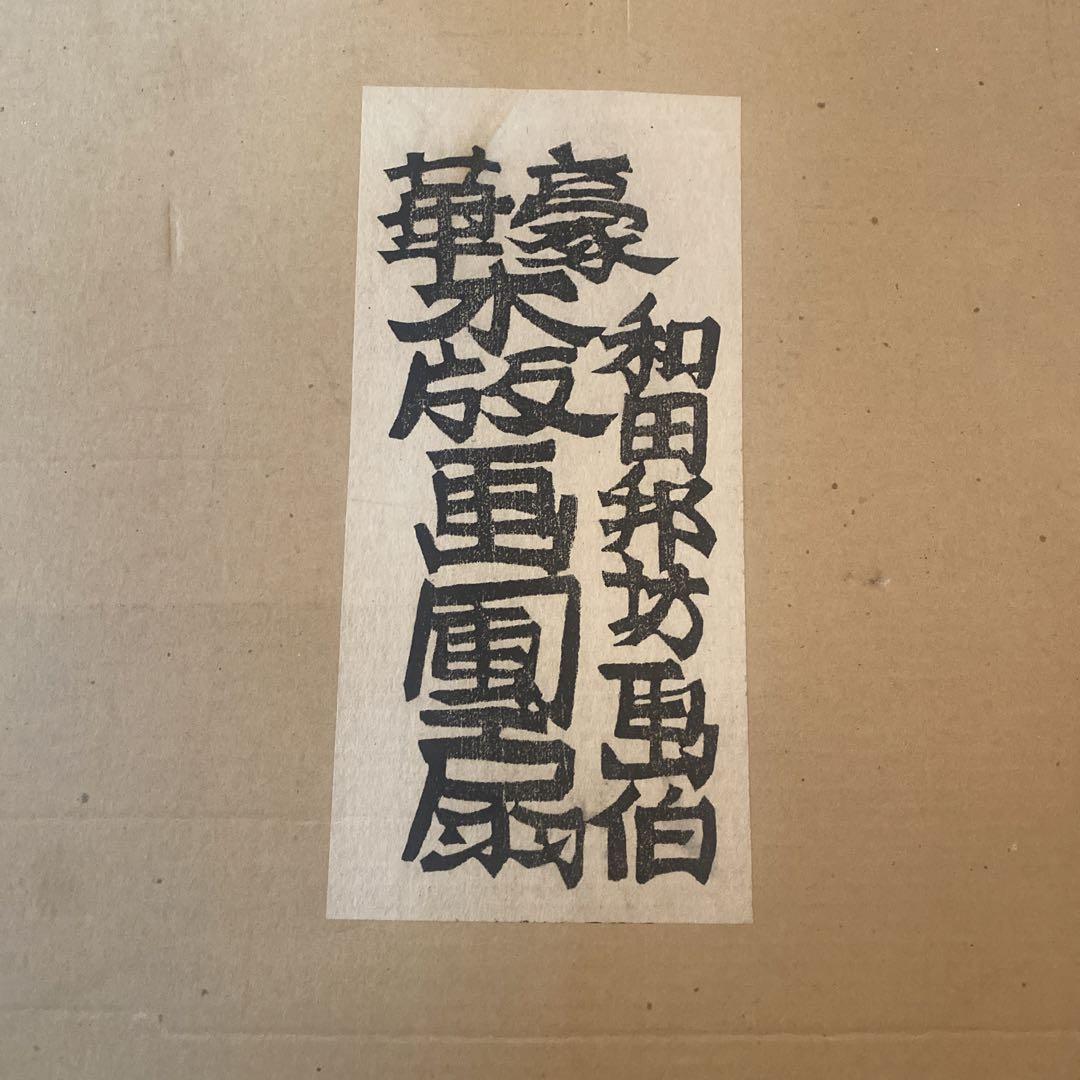 和田邦坊画伯
豪華木版画團扇